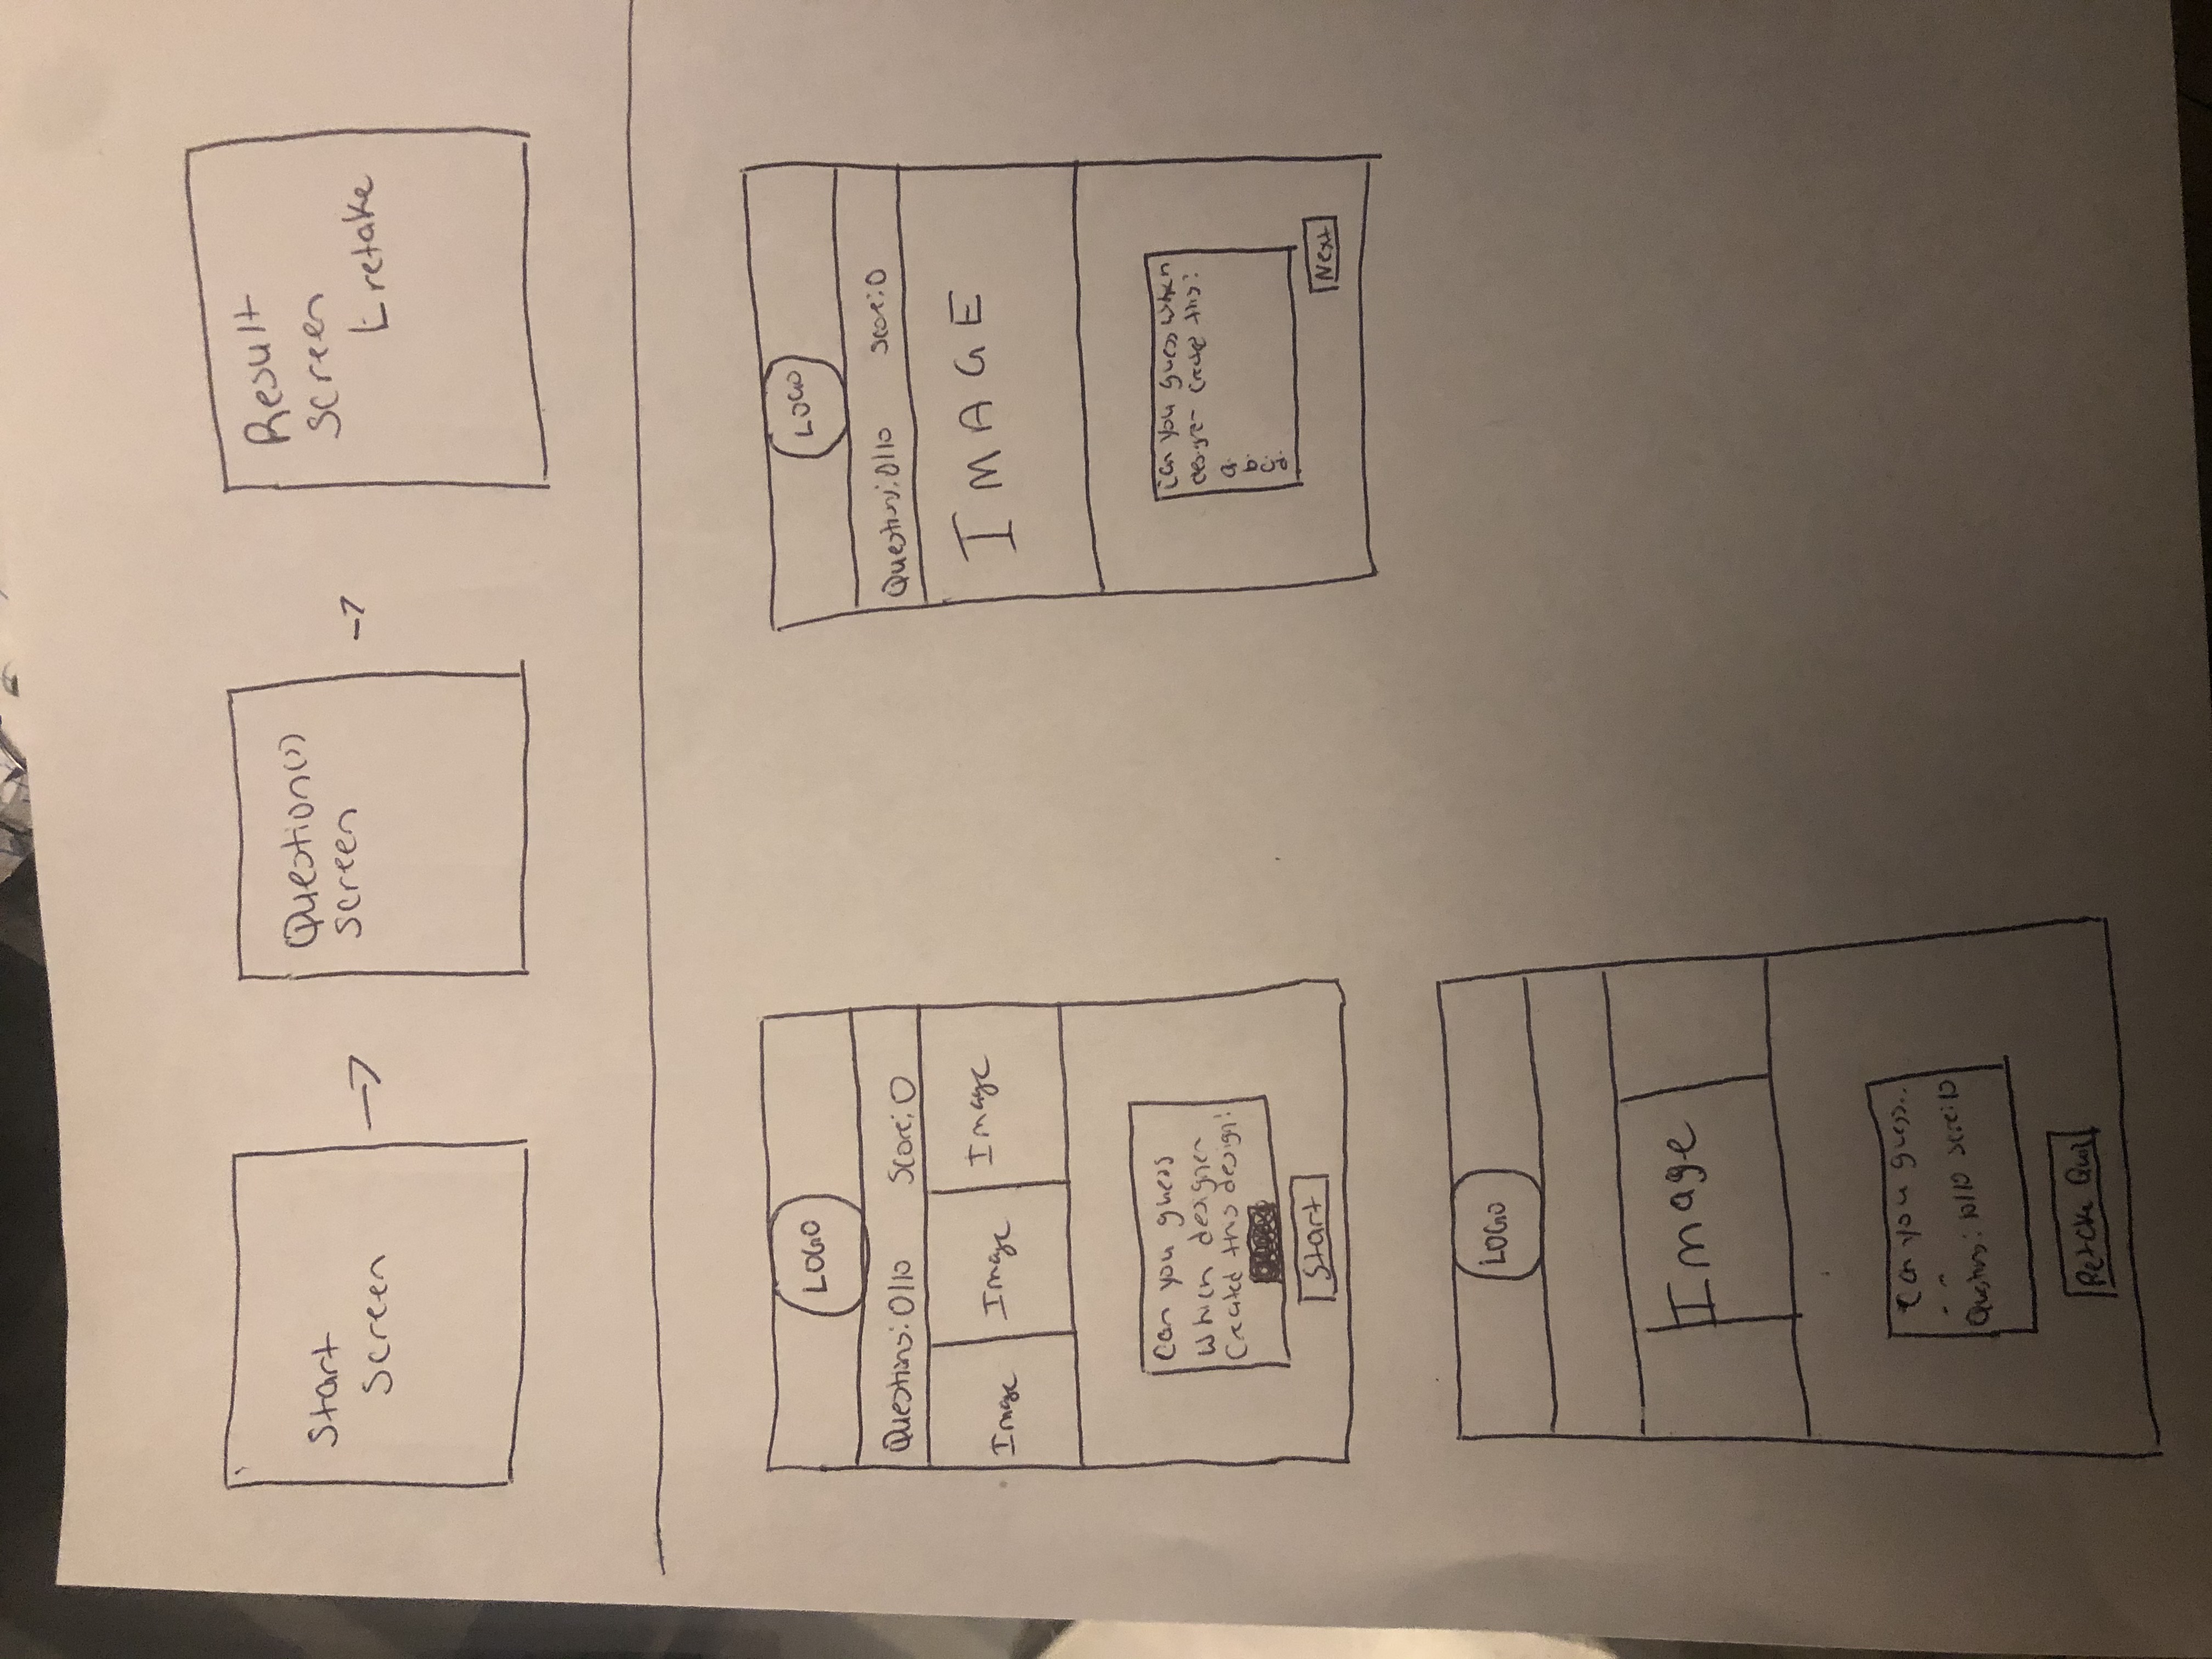 Start
Screen
Question(s)
screen
Result
screen
retake
LOGO
Questions: 0/10 Score: 0
Image Image Image
Can you guess
which designer
created this design?
Start
LOGO
Questions: 0/10 Score: 0
IMAGE
Can you guess which
designer created this?
a.
b.
c.
d.
Next
LOGO
Image
Can you guess..
Questions: 10/10 score: 10
Retake Quiz